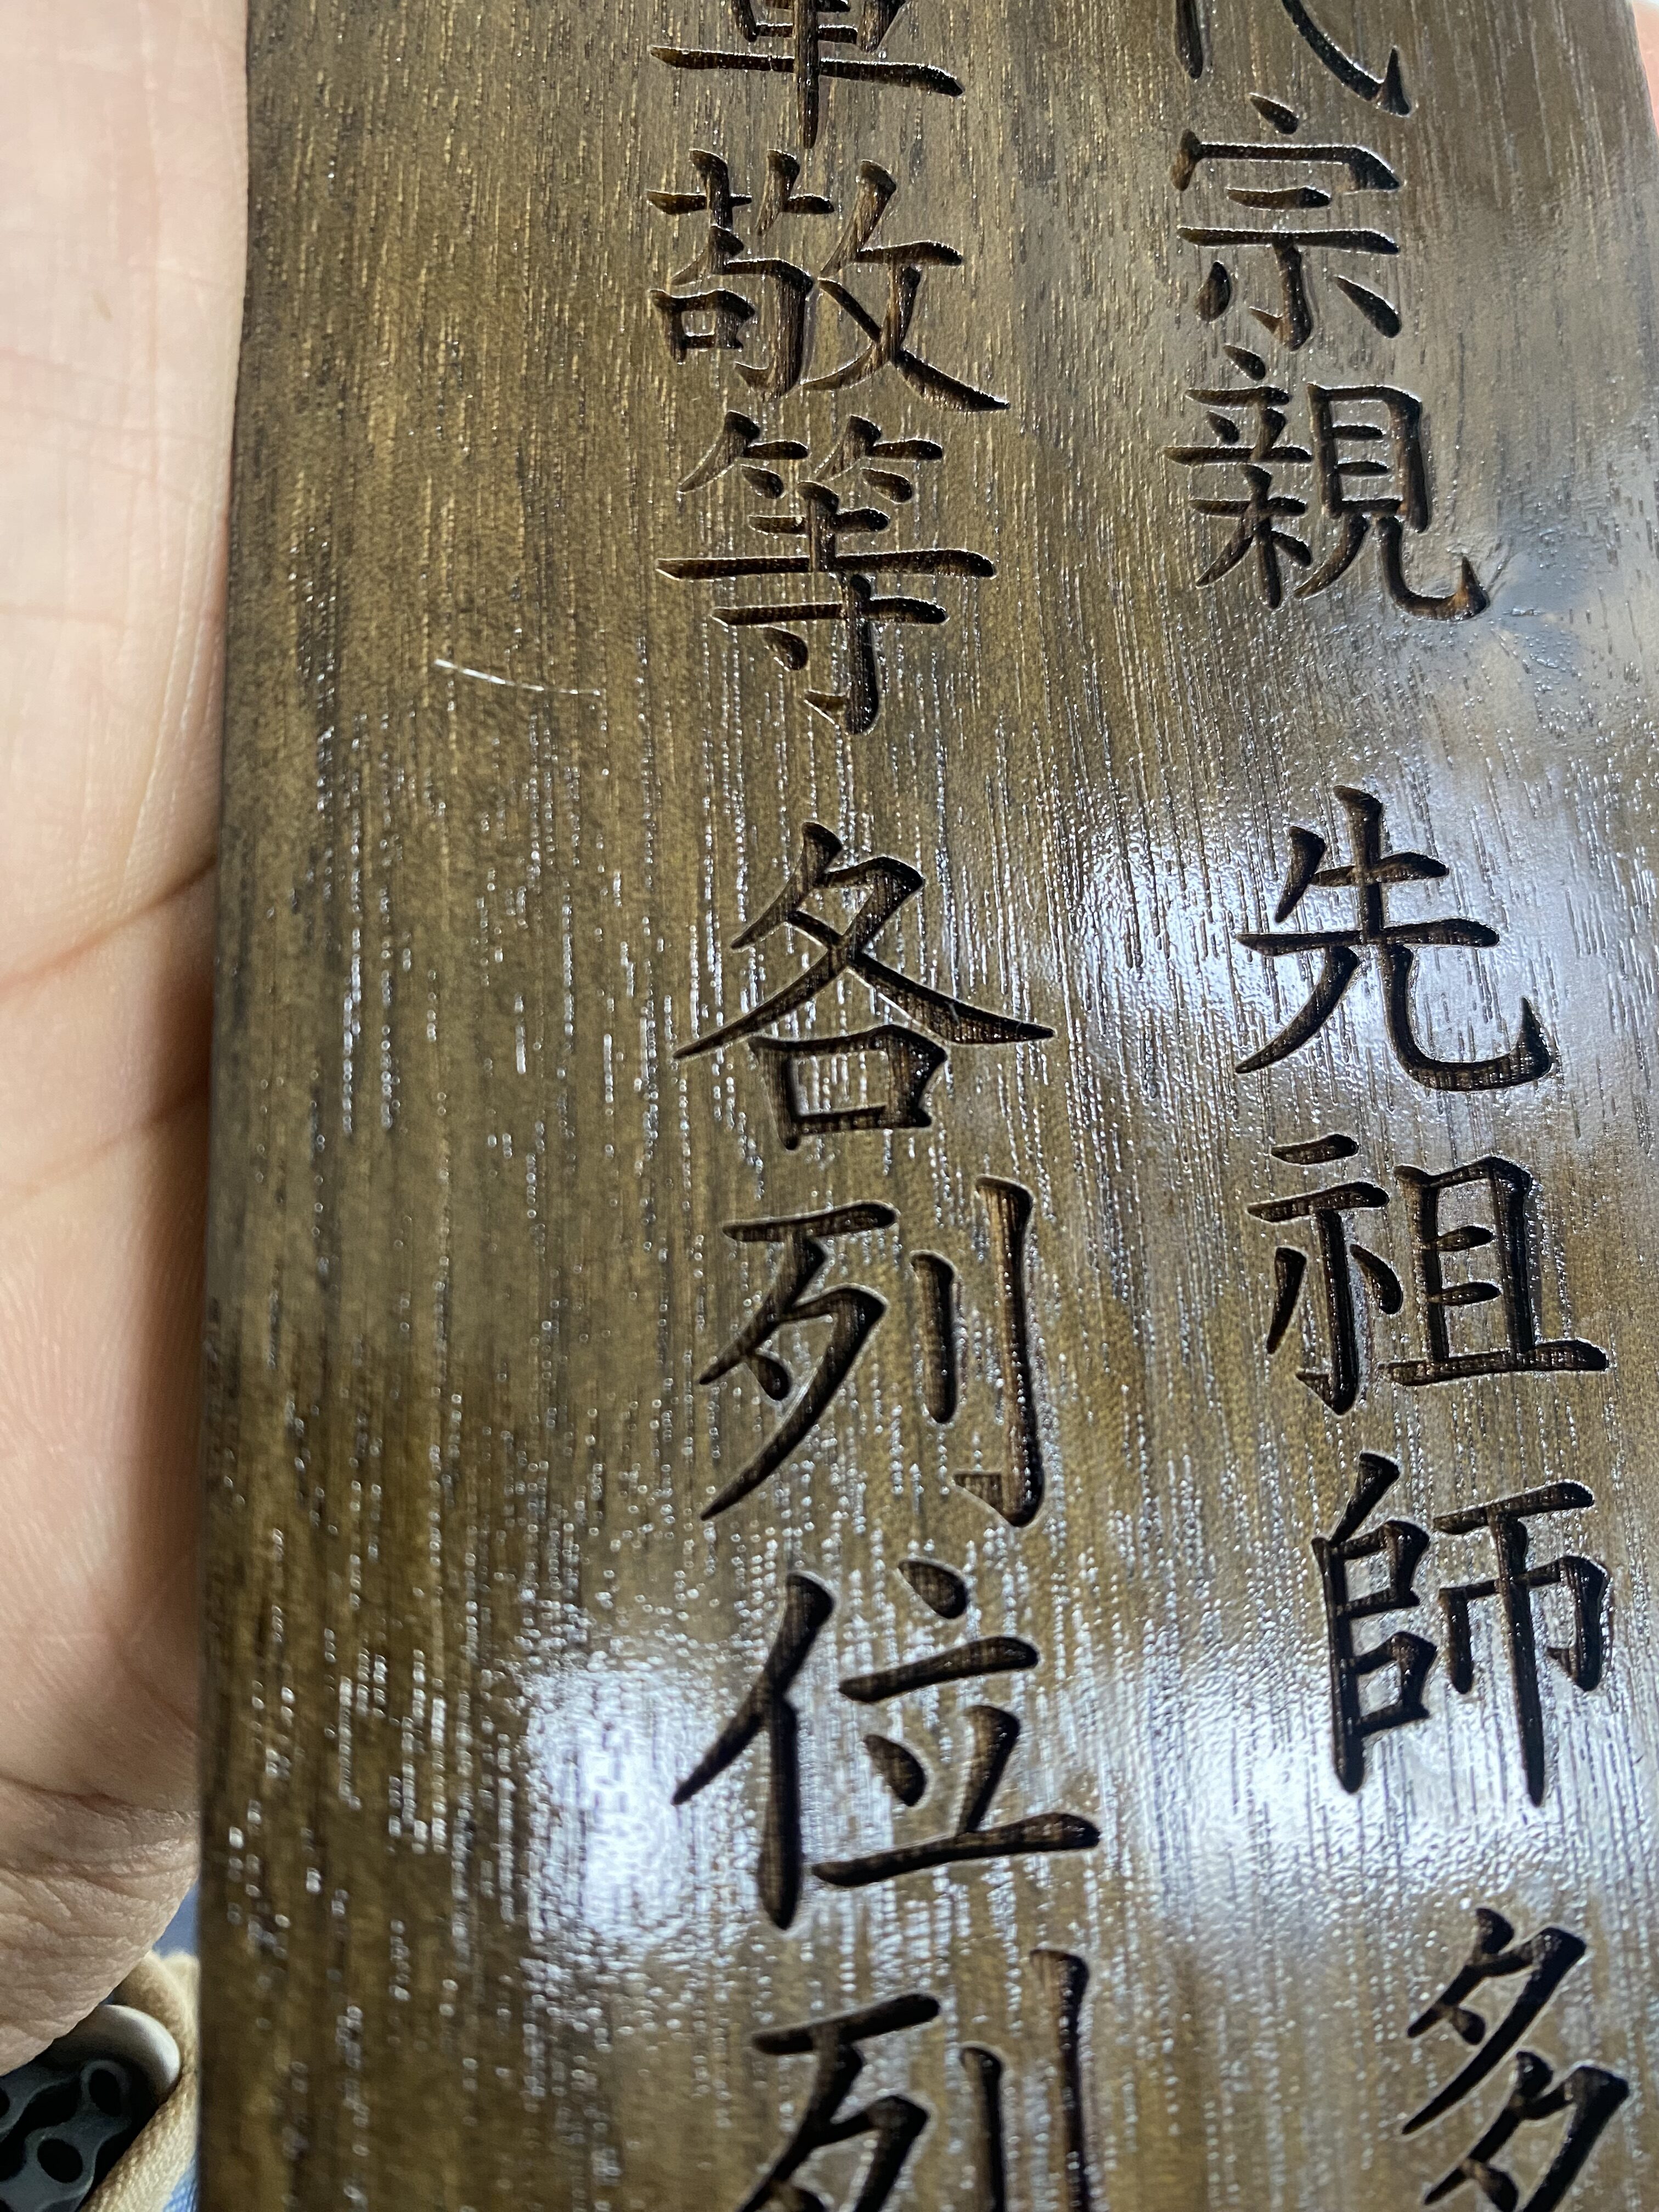 代宗親 先祖師 多
敬等 各列位列